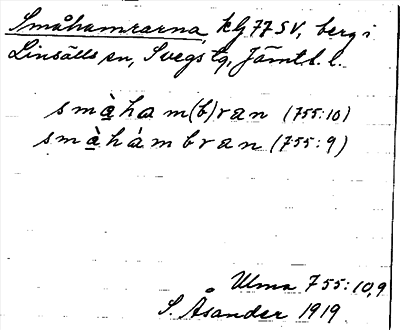 Småhamrarna, klj 77 SV, berg i
Linsälls sn, Svegs tg, Jämtl. l.
småham(b)ran (755:10)
smàhámbran (755:9)
Ulma 755:10,9
S. Åsander 1919